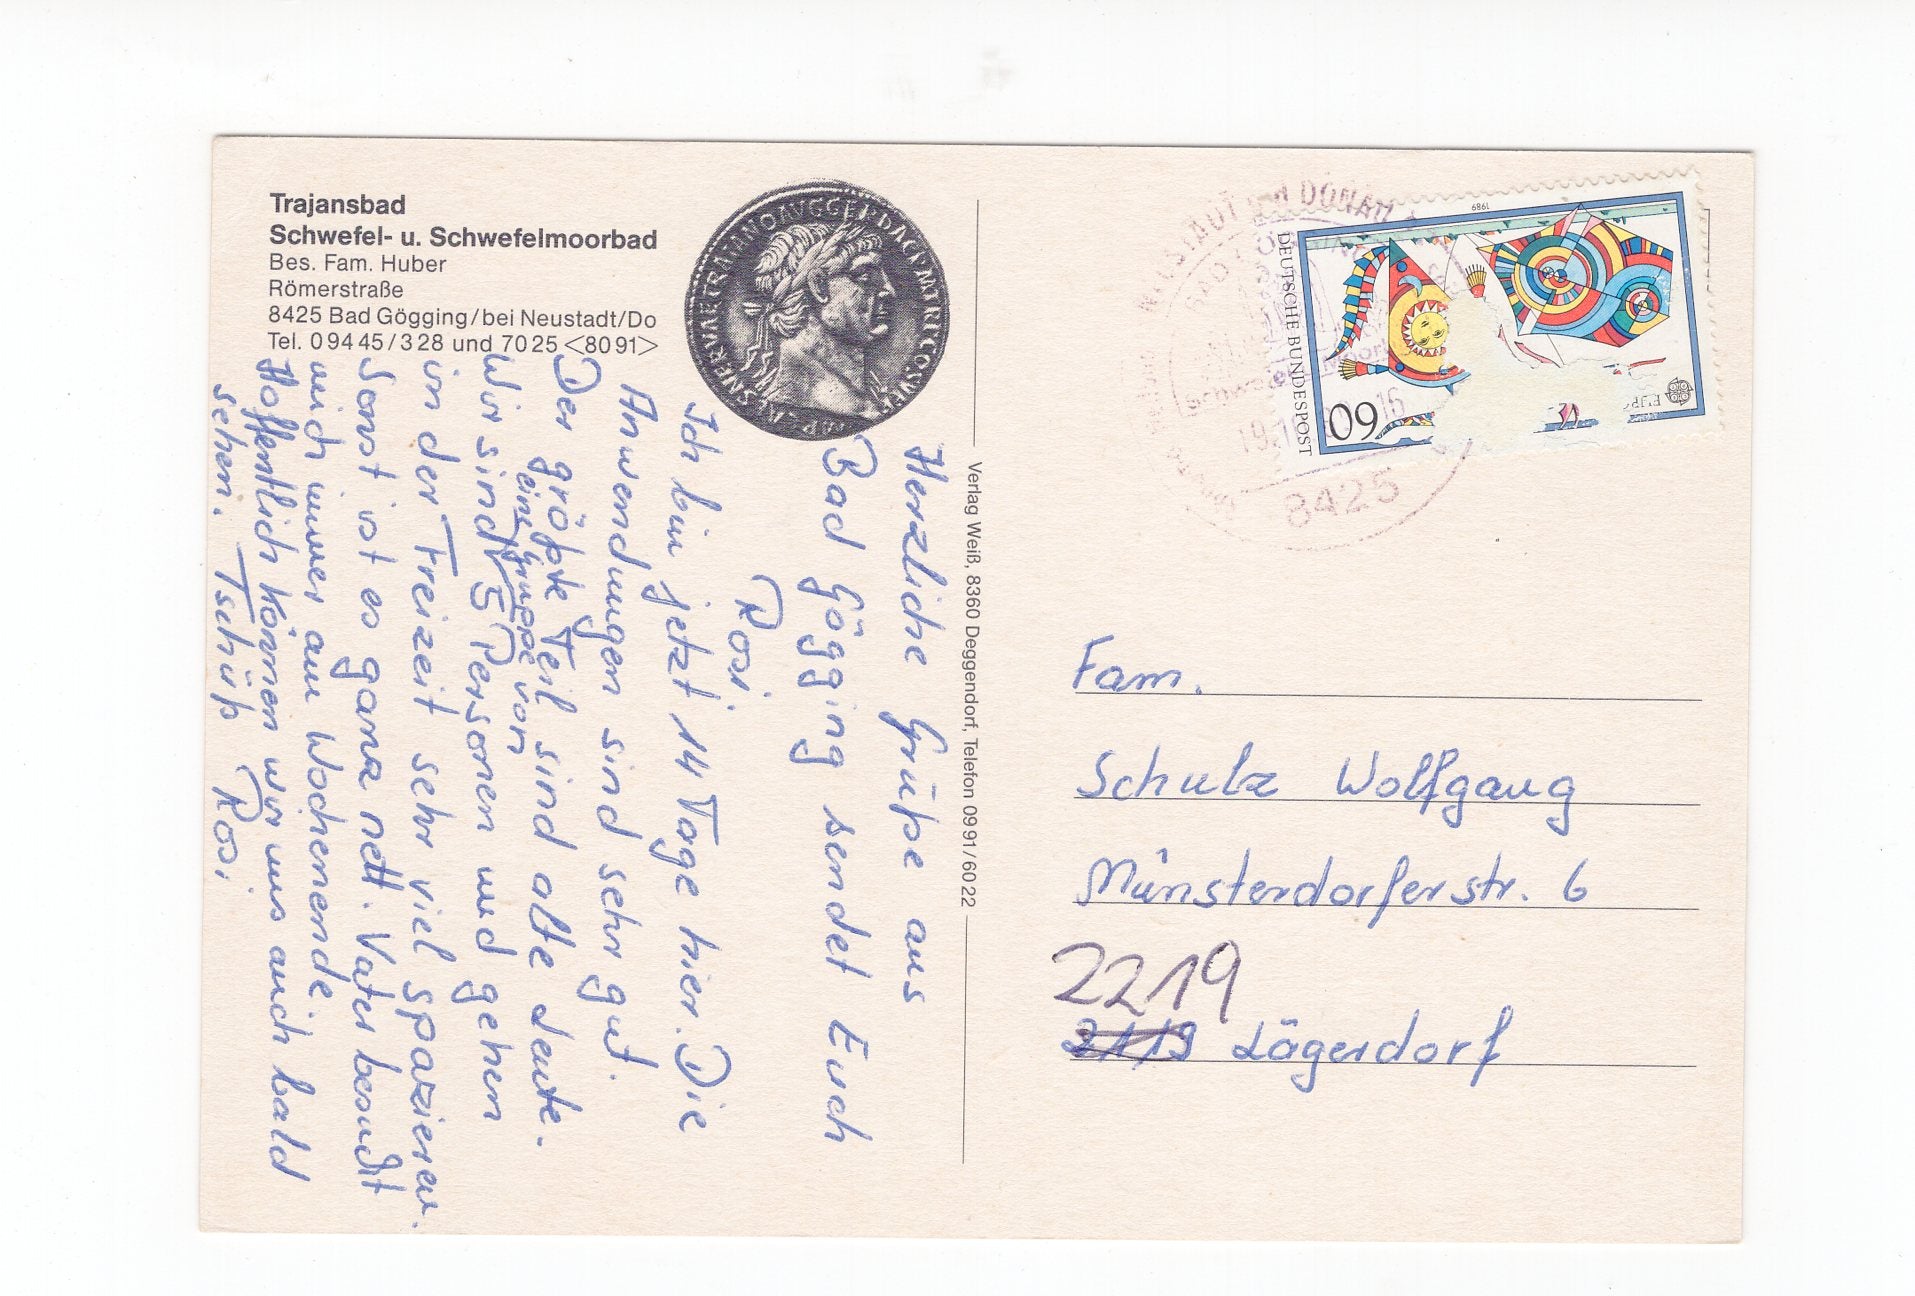 Trajansbad
Schwefel- u. Schwefelmoorbad
Bes. Fam. Huber
Römerstraße
8425 Bad Gögging/bei Neustadt/Do
Tel. 09445/328 und 7025 <8091>
Herzliche Grüße aus
Bad Gögging sendet Euch
Rosi
Ich bin jetzt 14 Tage hier. Die
Anwendungen sind sehr gut.
Der größte Teil sind alte Leute.
eine Gruppe von
Wir sind 5 Personen und gehen
in der Freizeit sehr viel spazieren.
Sonst ist es ganz nett. Vater besucht
mich immer am Wochenende
Hoffentlich können wir uns auch bald
sehen. Tschüß Rosi
Verlag Weiß, 8360 Deggendorf, Telefon 0991/6022
NEUSTADT DONAU
16
8425
1989
DEUTSCHE BUNDESPOST
60
Fam.
Schulz Wolfgang
Münsterdorferstr. 6
2219
2113 Lägerdorf